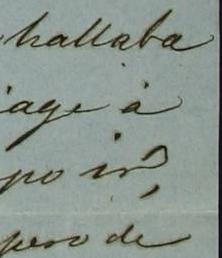 hallaba
iage á
po ir,
pero de